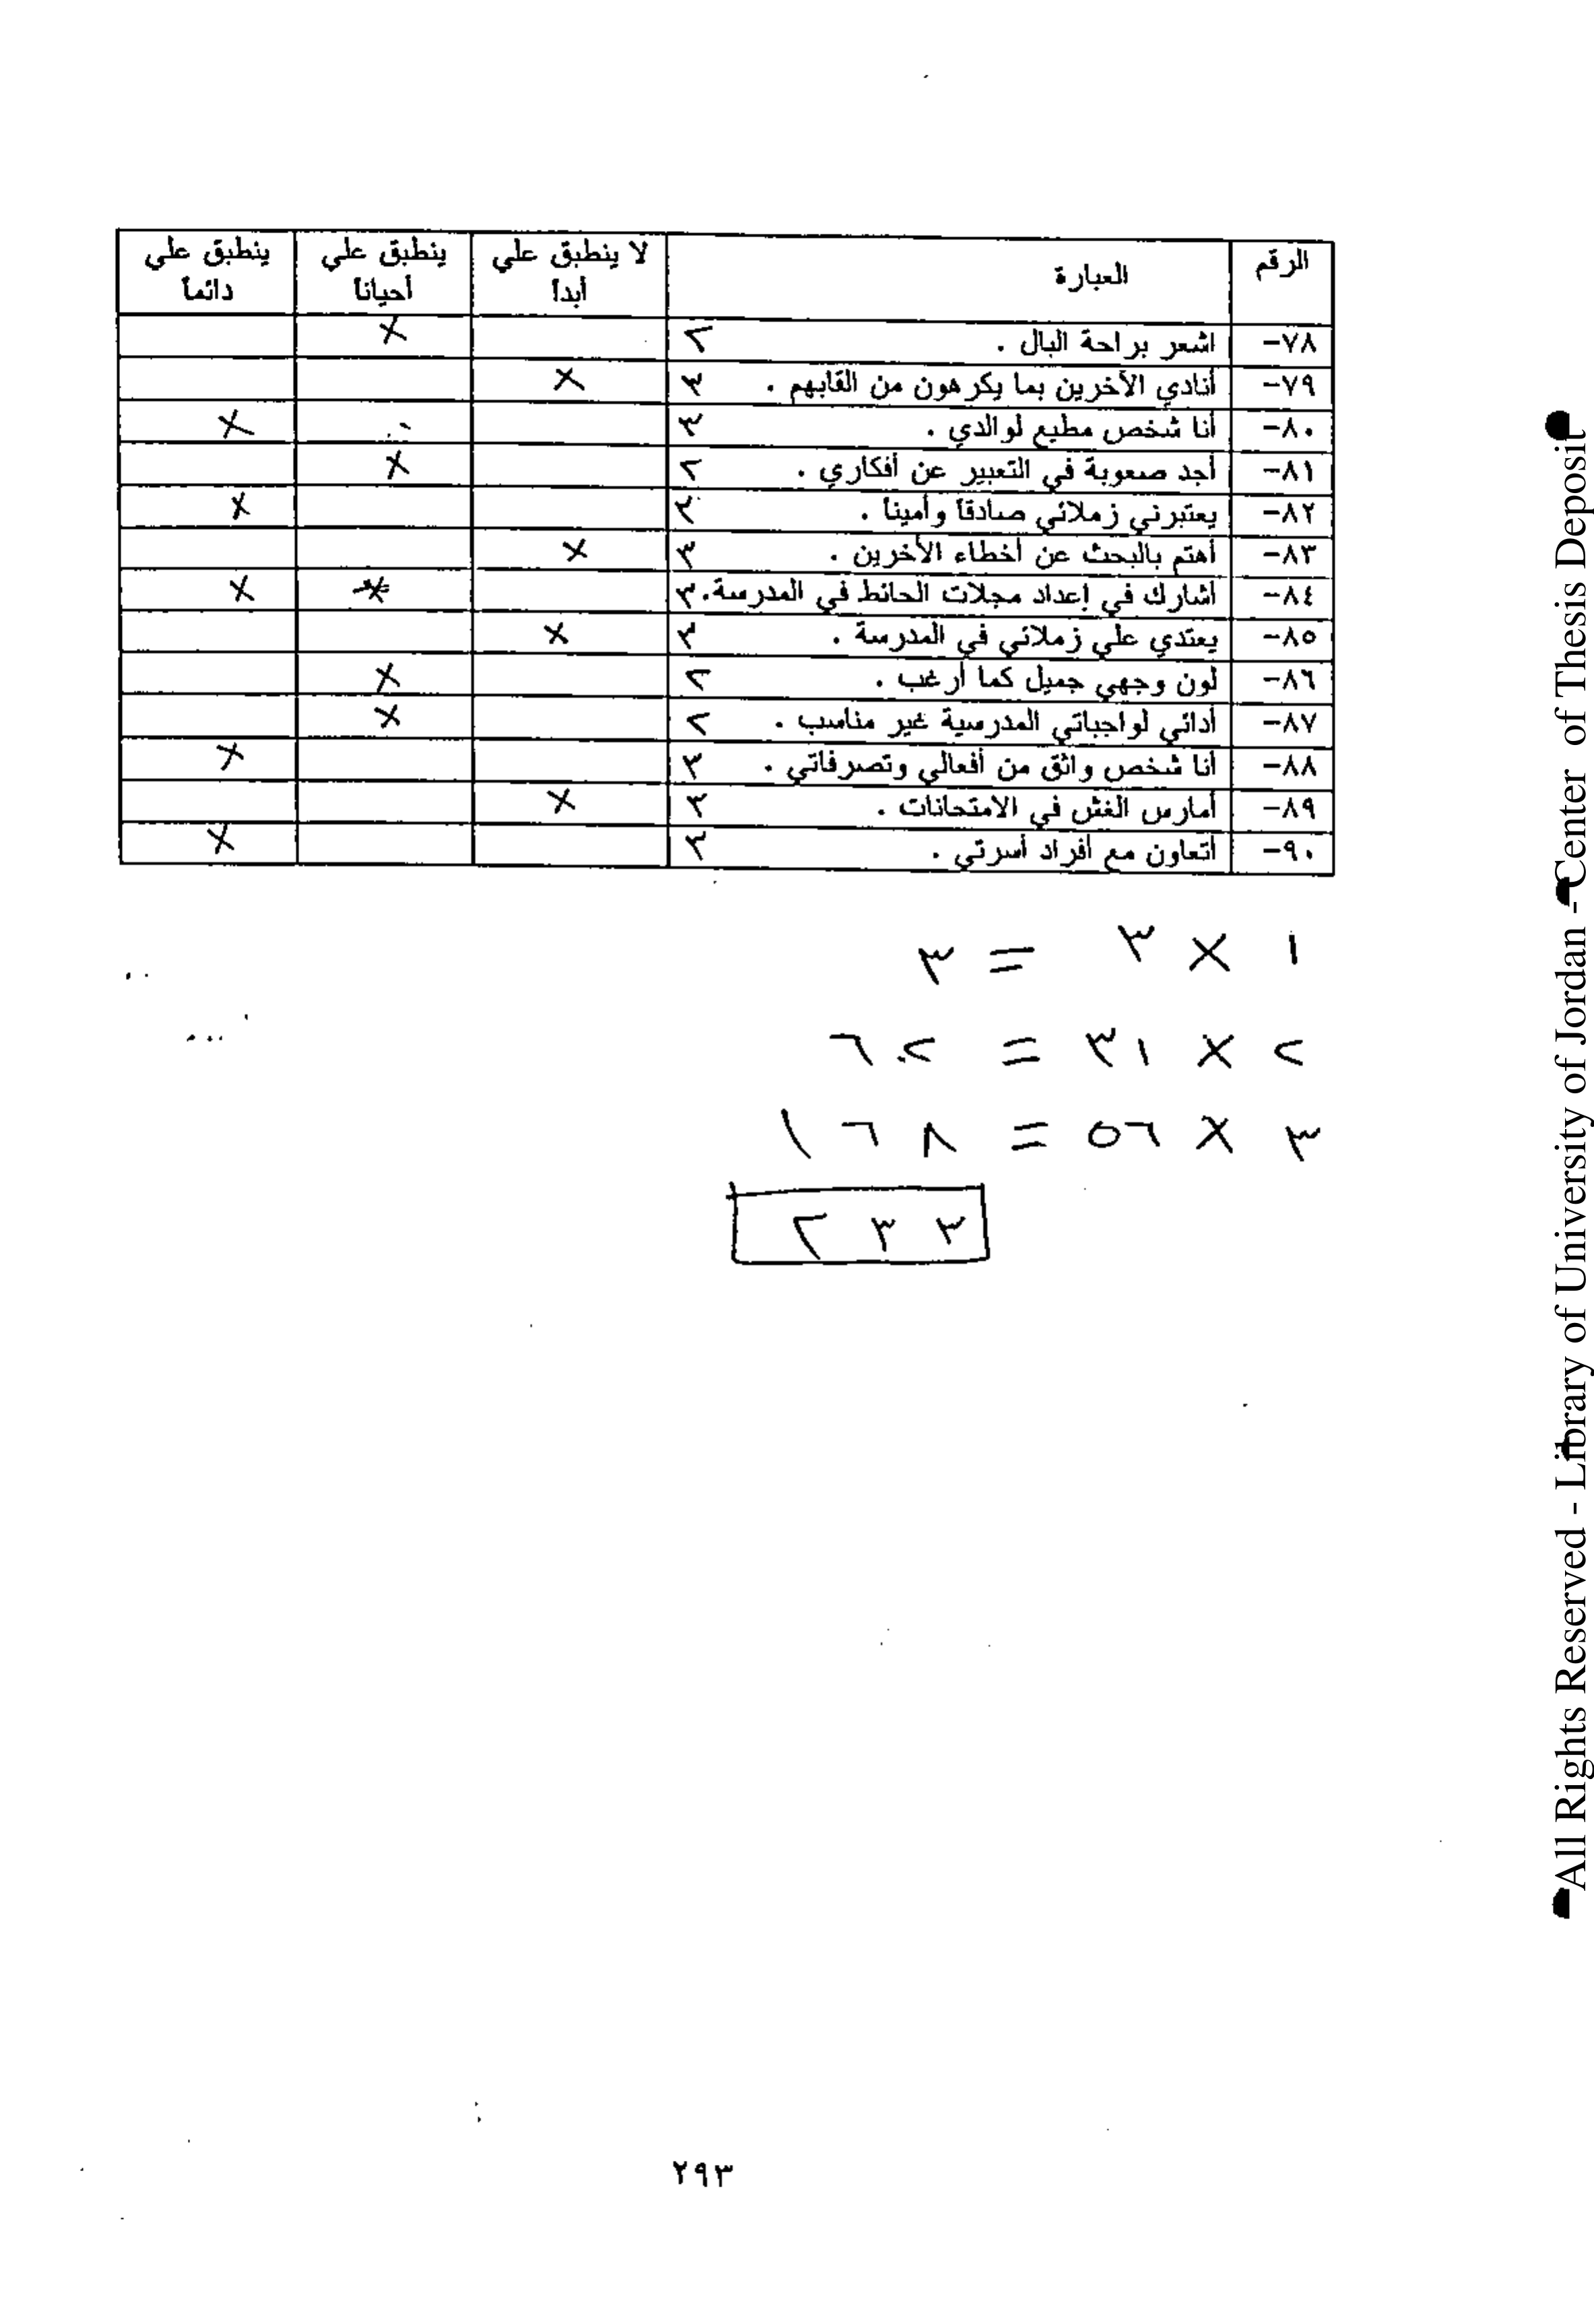 الرقم | العبارة | لا ينطبق علي أبداً | ينطبق علي أحياناً | ينطبق علي دائماً
٧٨- | اشعر براحة البال . ٢ | | X |
٧٩- | أنادي الآخرين بما يكرهون من القابهم . ٣ | X | |
٨٠- | أنا شخص مطيع لوالدي . ٣ | | | X
٨١- | أجد صعوبة في التعبير عن أفكاري . ٢ | | X |
٨٢- | يعتبرني زملائي صادقاً وأميناً . ٣ | | | X
٨٣- | أهتم بالبحث عن أخطاء الآخرين . ٣ | X | |
٨٤- | أشارك في إعداد مجلات الحائط في المدرسة. ٣ | | X | X
٨٥- | يعتدي علي زملائي في المدرسة . ٣ | X | |
٨٦- | لون وجهي جميل كما أرغب . ٢ | | X |
٨٧- | أدائي لواجباتي المدرسية غير مناسب . ٢ | | X |
٨٨- | أنا شخص واثق من أفعالي وتصرفاتي . ٣ | | | X
٨٩- | أمارس الغش في الامتحانات . ٣ | X | |
٩٠- | أتعاون مع أفراد أسرتي . ٣ | | | X
١ × ٣ = ٣
٢ × ٣١ = ٦٢
٣ × ٥٦ = ١٦٨
٢٣٣
٢٩٣
All Rights Reserved - Library of University of Jordan - Center of Thesis Deposit